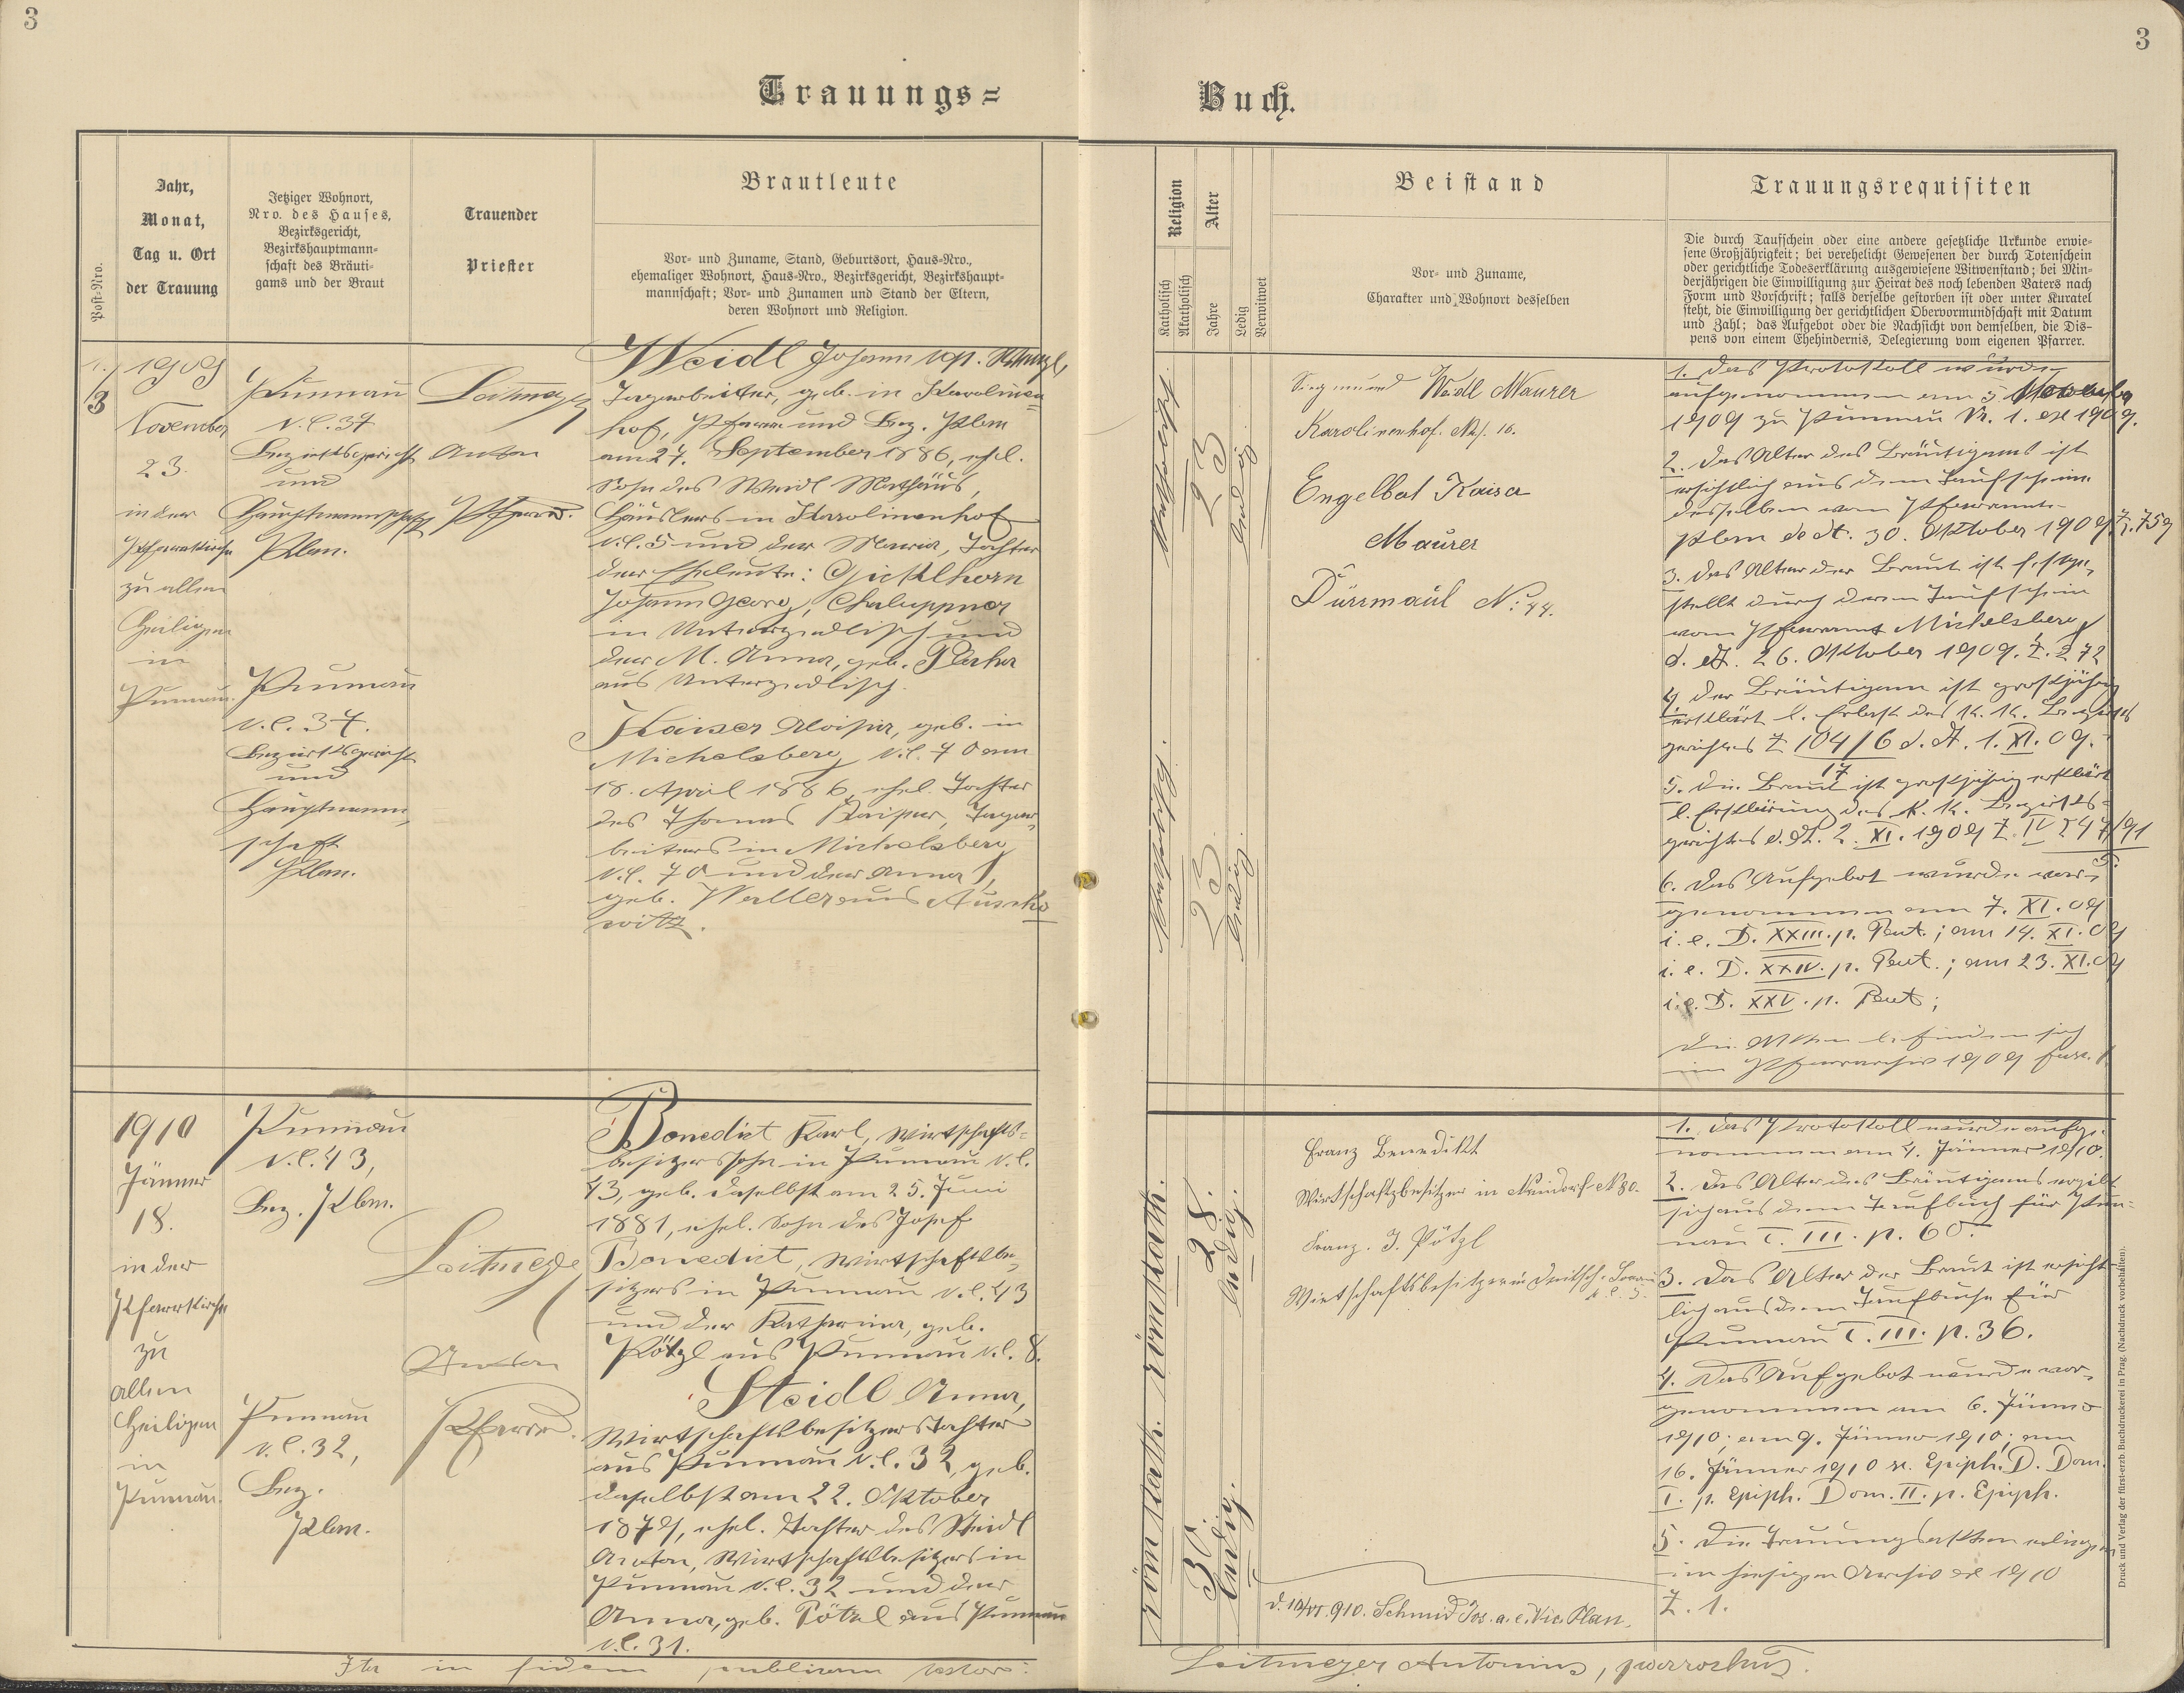 3
3
Trauungs=
Buch.
Post-Nro.
Jahr,
Monat,
Tag u. Ort
der Trauung
Jetziger Wohnort,
Nro. des Hauses,
Bezirksgericht,
Bezirkshauptmann=
schaft des Bräuti=
gams und der Braut
Trauender
Priester
Brautleute
Vor- und Zuname, Stand, Geburtsort, Haus-Nro.,
ehemaliger Wohnort, Haus-Nro., Bezirksgericht, Bezirkshaupt=
mannschaft; Vor- und Zunamen und Stand der Eltern,
deren Wohnort und Religion.
Religion
Katholisch
Akatholisch
Alter
Jahre
Ledig
Verwitwet
Beistand
Vor- und Zuname,
Charakter und Wohnort desselben
Trauungsrequisiten
Die durch Taufschein oder eine andere gesetzliche Urkunde erwie=
sene Großjährigkeit; bei verehelicht Gewesenen der durch Totenschein
oder gerichtliche Todeserklärung ausgewiesene Witwenstand; bei Min=
derjährigen die Einwilligung zur Heirat des noch lebenden Vaters nach
Form und Vorschrift; falls derselbe gestorben ist oder unter Kuratel
steht, die Einwilligung der gerichtlichen Obervormundschaft mit Datum
und Zahl; das Aufgebot oder die Nachsicht von demselben, die Dis=
pens von einem Ehehindernis, Delegierung vom eigenen Pfarrer.
3
1909
November
23.
in der
Pfarrkirche
zu allen
Heiligen
in
Punnau.
Punnau
N.C. 37
Bezirksgericht
und
Hauptmannschaft
Plan.
Punnau
N.C. 37.
Bezirksgericht
und
Hauptmann=
schaft
Plan.
Leitmeyer
Anton
Pfarrer.
Weidl Johann
Tagarbeiter, geb. in Karolinen=
hof, Pfarre und Bez. Plan
am 27. September 1886, ehel.
Sohn des Weidl Mathäus,
Häuslers in Karolinenhof
N.C. 5 und der Maria, Tochter
der Eheleute: Gicklhorn
Johann Georg, Chaluppner
in Untergodlisch und
der M. Anna, geb.
aus Untergodlisch.
Kaiser Aloisia, geb. in
Michelsberg N.C. 70 am
18. April 1886, ehel. Tochter
des Thomas Kaiser, Tagar=
beiters in Michelsberg
N.C. 70 und der Anna,
geb. Waller aus Auscho
witz.
katholisch
23
ledig
katholisch
23
ledig
Siegmund Weidl Maurer
Karolinenhof. No. 16.
Engelbat Kaisa
Maurer
Dürrmaul No. 44.
1. Das Protokoll wurde
aufgenommen am 5 November
1909 zu Punnau Nr. 1. ex 1909.
2. Das Alter des Bräutigams ist
ersichtlich aus dem Taufscheine
desselben vom Pfarramte
Plan de dt. 30. Oktober 1909 Z. 759
3. Das Alter der Braut ist festge=
stellt durch deren Taufschein
vom Pfarramt Michelsberg
d. dt. 26. Oktober 1909. Z. 272
4. Der Bräutigam ist großjährig
erklärt l. Erlaß des k. k. Bezirks
gerichtes Z 104/6 d. dt. 1. XI. 09.
17
5. Die Braut ist großjährig erklärt
l. Erklärung des k. k. Bezirks=
gerichtes d. dt. 2. XI. 1909 Z. IV 247/91
6. Das Aufgebot wurde vor=
genommen am 7. XI. 09
i. e. D. XXIII. p. Pent.; am 14. XI. 09
i. e. D. XXIV. p. Pent.; am 23. XI. 09
i. e. D. XXV. p. Pent;
Die Akten befinden sich
im Pfarrarchiv 1909
1910
Jänner
18.
in der
Pfarrkirche
zu
allen
Heiligen
in
Punnau.
Punnau
N.C. 43,
Bez. Plan.
Punnau
N.C. 32,
Bez.
Plan.
Leitmeyer
Anton
Pfarrer.
Benedict Karl, Wirtschafts=
besitzerssohn in Punnau N.C.
43, geb. daselbst am 25. Juni
1881, ehel. Sohn des Josef
Benedict, Wirtschaftsbe=
sitzers in Punnau N.C. 43
und der Katharina, geb.
Pötzl aus Punnau N.C. 8.
Steidl Anna,
Wirtschaftsbesitzerstochter
aus Punnau N.C. 32, geb.
daselbst am 22. Oktober
1879, ehel. Tochter des Steidl
Anton, Wirtschaftsbesitzers in
Punnau N.C. 32 und der
Anna, geb. Pötzl aus Punnau
N.C. 31.
röm kath.
28.
ledig.
röm kath.
30.
ledig.
Franz Benedikt
Wirtschaftzbesitzer in Neuidorf N 30.
Franz. J. Pötzl
Wirtschaftsbesitzer in Deutsch-
N.C. 5.
d. 10/VI. 910. Schmid Jos. a. e. Vic. Plan.
1. Das Protokoll wurde aufge=
nommen am 4. Jänner 1910.
2. Das Alter des Bräutigams ergibt
sich aus dem Taufbuch für Pun=
nau T. III. p. 60.
3. Das Alter der Braut ist ersicht=
lich aus dem Taufbuche für
Punnau T. III. p. 36.
4. Das Aufgebot wurde vor=
genommen am 6. Jänner
1910; am 9. Jänner 1910; am
16. Jänner 1910 Epiph. D. Dom.
I. p. Epiph. Dom. II. p. Epiph.
5. Die Trauungsakten erliegen
im hiesigen Archiv ex 1910
Z. 1.
Ita in fidem publicam testor:
Leitmeyer Antonius, parrochus.
Druck und Verlag der fürst-erzb Buchdruckerei in Prag. (Nachdruck vorbehalten).